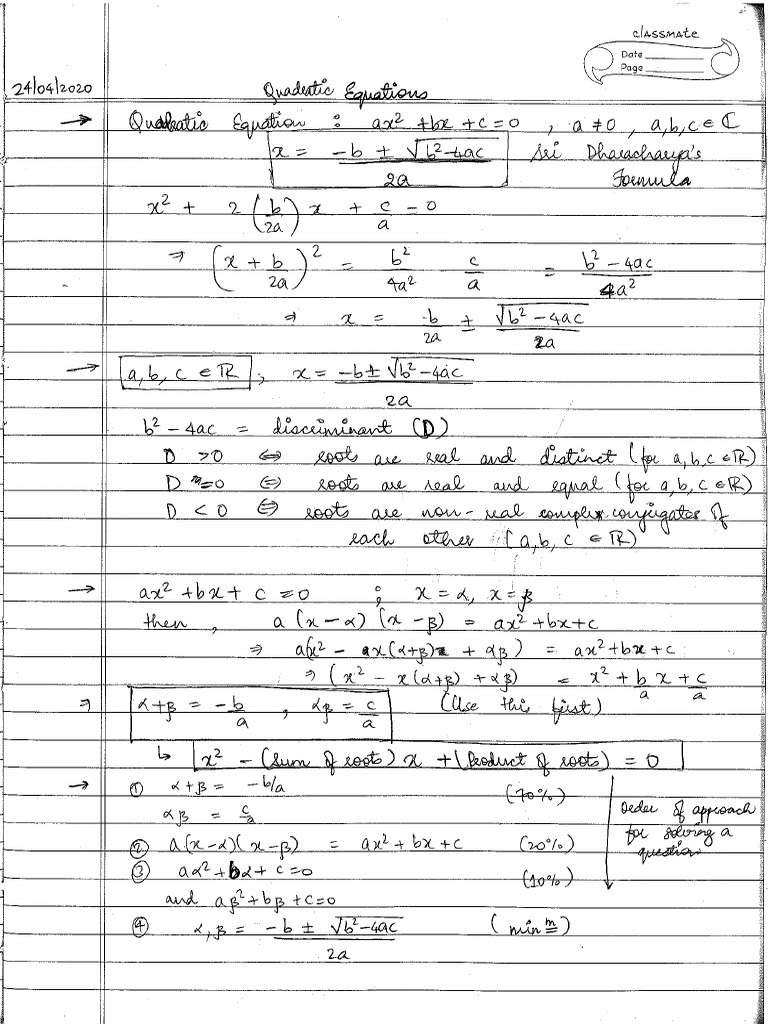 classmate
Date
Page
24/04/2020
Quadratic Equations
→ Quadratic Equation : ax² + bx + c = 0 , a ≠ 0 , a, b, c ∈ ℂ
x = (-b ± √(b² - 4ac)) / 2a Sri Dharacharya's
Formula
x² + 2(b/2a)x + c/a = 0
⇒ (x + b/2a)² = b²/4a² c/a = (b² - 4ac)/4a²
⇒ x = -b/2a ± √(b² - 4ac)/2a
→ a, b, c ∈ ℝ ; x = (-b ± √(b² - 4ac)) / 2a
b² - 4ac = discriminant (D)
D > 0 ⇔ roots are real and distinct (for a, b, c ∈ ℝ)
D = 0 ⇔ roots are real and equal (for a, b, c ∈ ℝ)
D < 0 ⇔ roots are non-real complex conjugates of
each other (a, b, c ∈ ℝ)
→ ax² + bx + c = 0 ; x = α, x = β
then, a(x - α)(x - β) = ax² + bx + c
⇒ a(x² - x(α+β) + αβ) = ax² + bx + c
⇒ (x² - x(α+β) + αβ) = x² + b/a x + c/a
⇒ α+β = -b/a , αβ = c/a (Use this first)
↳ x² - (Sum of roots) x + (Product of roots) = 0
→ ① α+β = -b/a (70%)
αβ = c/a
② a(x-α)(x-β) = ax² + bx + c (20%)
③ aα² + bα + c = 0 (10%)
and aβ² + bβ + c = 0
④ α, β = (-b ± √(b² - 4ac)) / 2a (min<u>m</u>)
Order of approach
for solving a
question